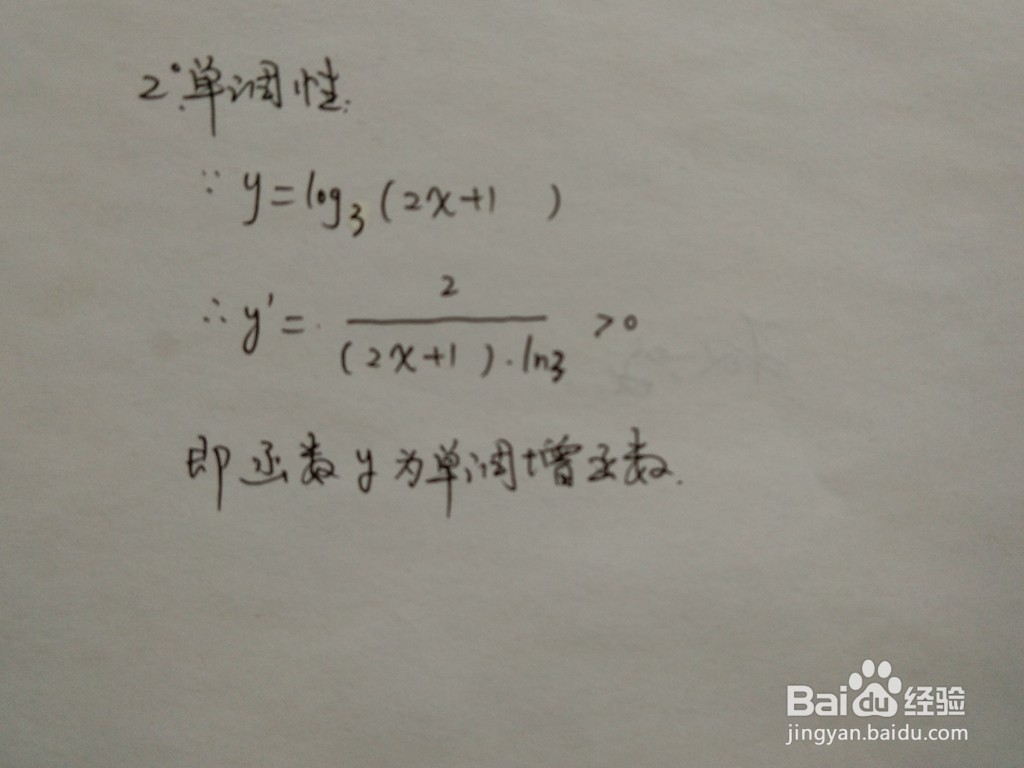 2°.单调性:
∵ y=log₃(2x+1 )
∴ y'= 2/((2x+1)·ln3) >0
即函数y为单调增函数.
Baidu经验
jingyan.baidu.com